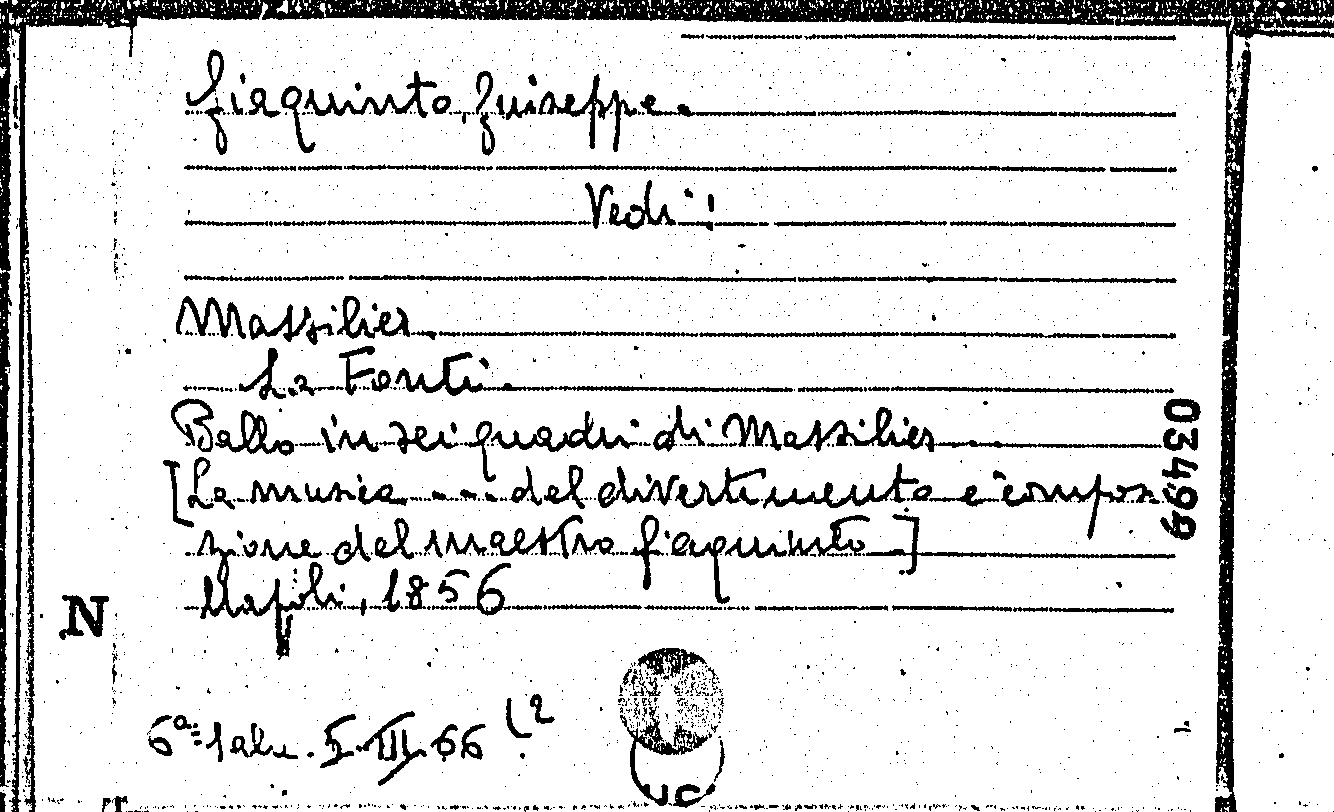 Giaquinto, Giuseppe.
Vedi:
Massilier.
La Fonti.
Ballo in sei quadri di Massilier....
[La musica .... del divertimento è compo-
zione del maestro Giaquinto]
Napoli, 1856
03499
N
6ª= 5.III.66 (2